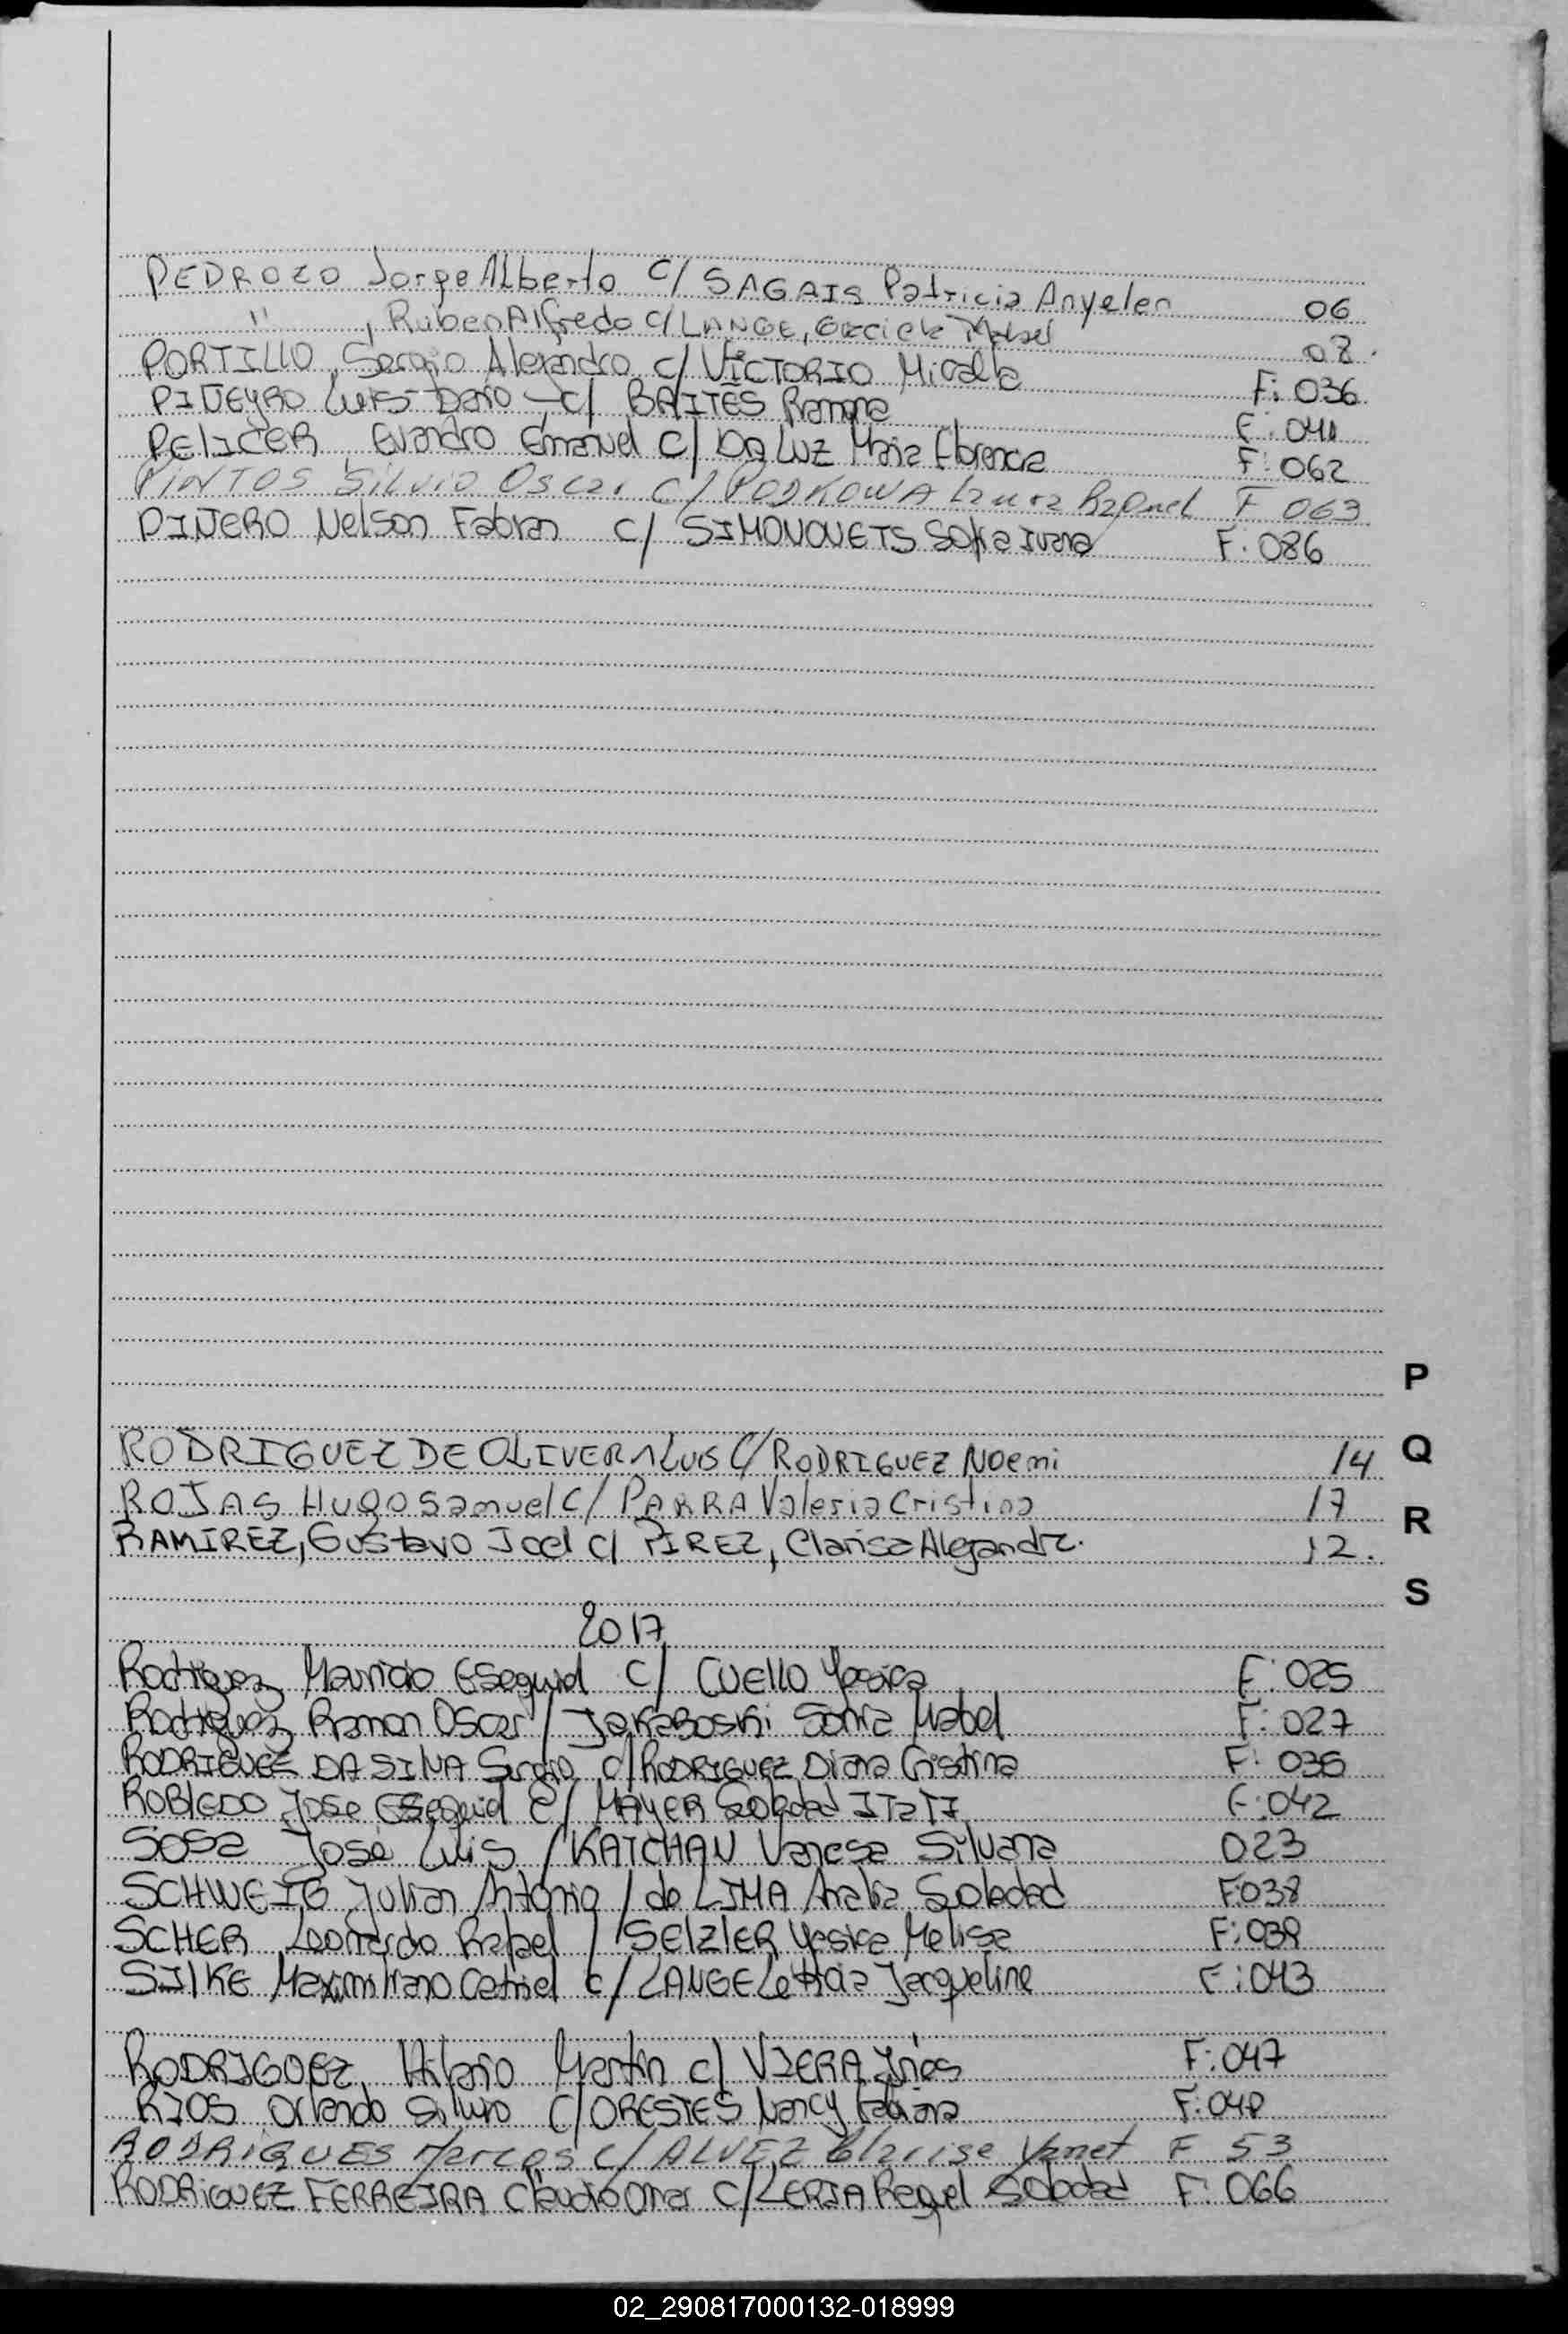 PEDROZO Jorge Alberto c/ SAGAIS Patricia Anyelen 06
" , Ruben Alfredo c/ LANGE, Graciela Mabel 08
PORTILLO, Sergio Alejandro c/ VICTORIO Micaela F: 036
PIÑEYRO Luis Dario c/ BAITES Ramona F: 041
PELICER Evandro Emanuel c/ DA LUZ Maria Florencia F: 062
PINTOS Silvio Oscar c/ PODKOWA Laura Raquel F 063
PIÑERO Nelson Fabian c/ SIMONOVETS Sofia Ivana F: 086
P
RODRIGUEZ DE OLIVERA LUIS C/ RODRIGUEZ NOemi 14
Q
ROJAS Hugo Samuel c/ PARRA Valeria Cristina 17
R
RAMIREZ, Gustavo Joel c/ PIREZ, Clarisa Alejandra. 12.
S
2017
Rodriguez Mauricio Esequiel c/ CUELLO Yesica F: 025
Rodriguez Ramon Oscar / JakaBoski Sonia Mabel F: 027
RODRIGUEZ DA SILVA Sergio c/ RODRIGUEZ Diana Cristina F: 035
ROBLEDO Jose Esequiel c/ MAYER Soledad ITaTI F: 042
Sosa Jose Luis / KATCHAN Vanesa Silvana 023
SCHWEIG Julian Antonio / de LIMA Analia Soledad F:038
SCHER Leonardo Rafael / SELZLER Yesica Melisa F: 039
SILKE Maximiliano Catriel c/ LANGE Leticia Jacqueline F: 043
RODRIGUEZ, Hilario Martin c/ VIERA Inés F: 047
RIOS Orlando Silvio C/ ORESTES Nancy Fabiana F: 048
RODRIGUES Marcos c/ ALVEZ Clarise Yanet F 53
RODRIGUEZ FERREIRA Claudio Omar C/ LERIA Raquel Soledad F: 066
02_290817000132-018999